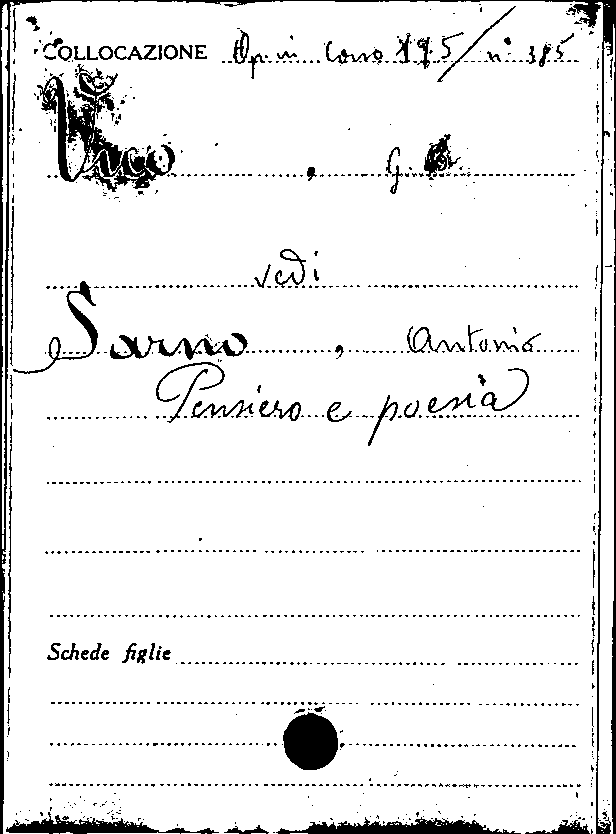 COLLOCAZIONE Op. in corso 195/n° 385
Vico, G. B.
vedi
Sarno, Antonio
Pensiero e poesia
Schede figlie